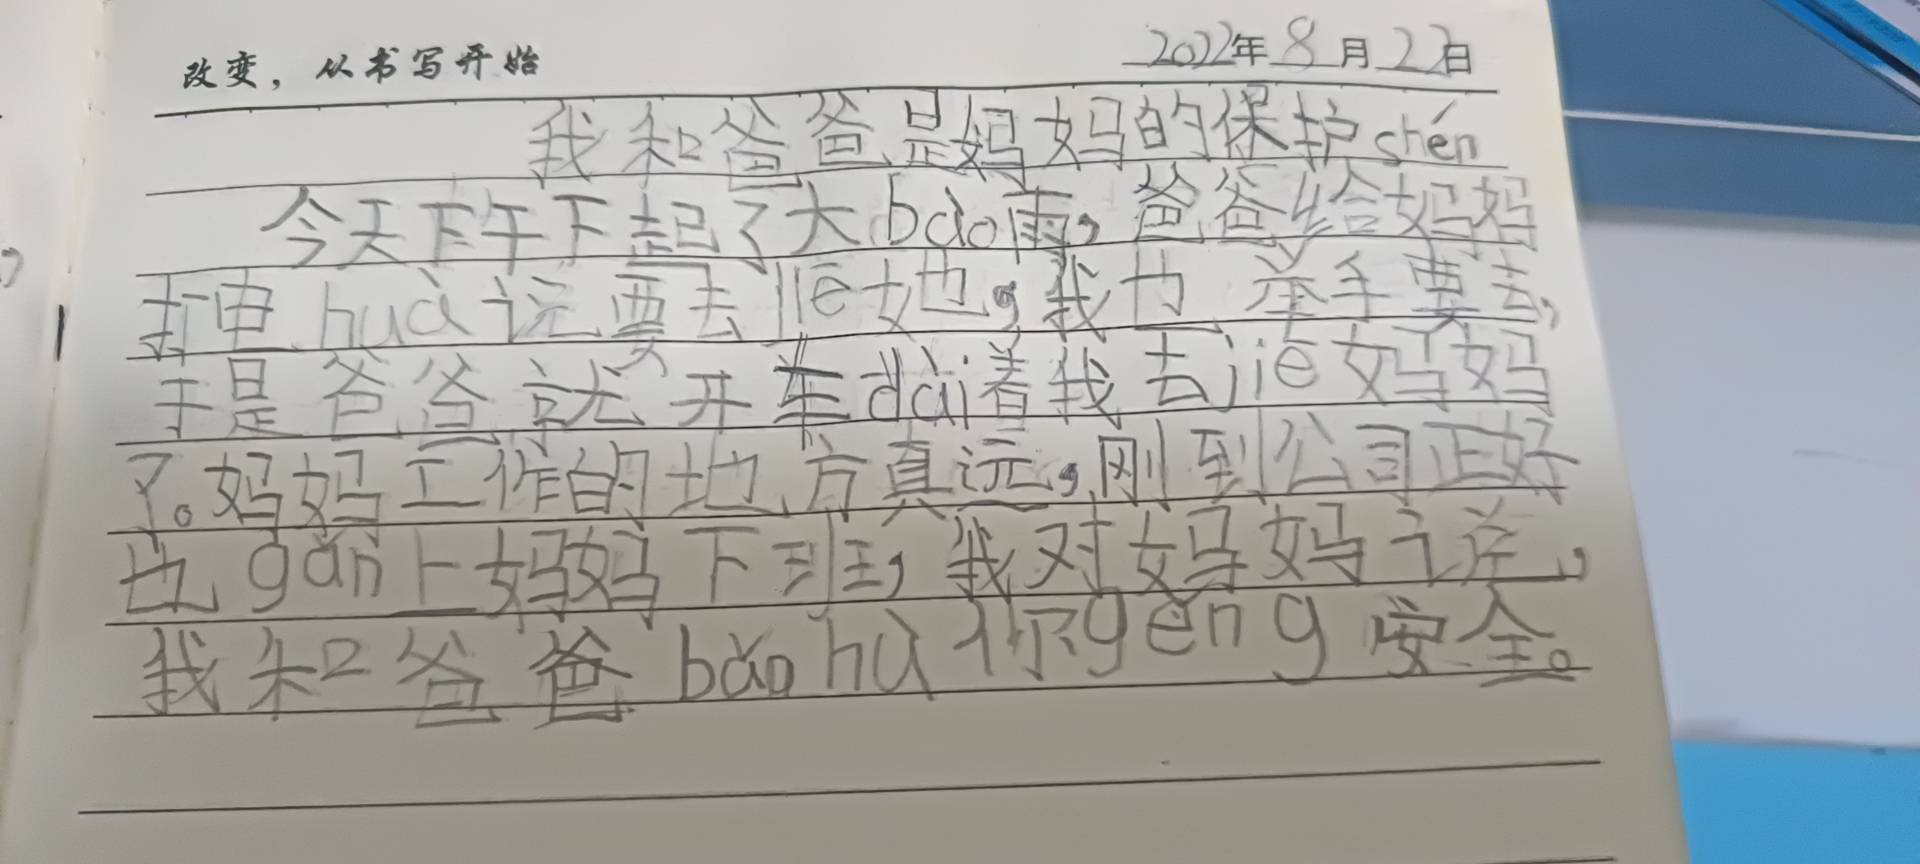 改变，从书写开始 2022年8月22日
我和爸爸是妈妈的保护shén
今天下午下起了大bào雨，爸爸给妈妈
打电huà说要去jiē她，我也举手要去，
于是爸爸就开车dài着我去jiē妈妈
了。妈妈工作的地方真远，刚到公司正好
也gǎn上妈妈下班，我对妈妈说，
我和爸爸bǎohù你gèng安全。